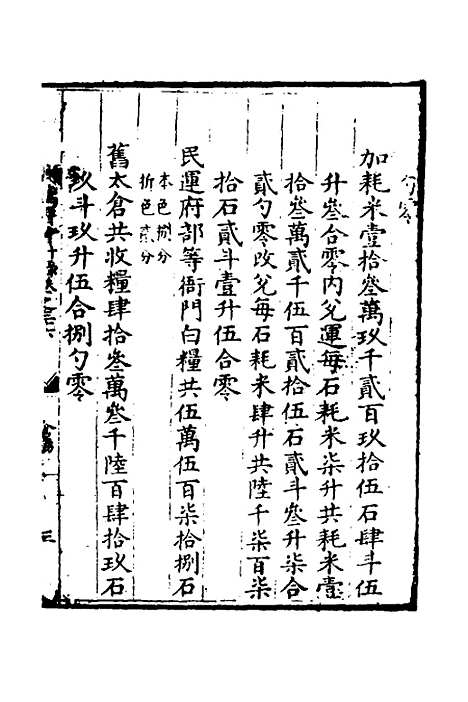 勺零
加耗米壹拾叄萬玖千貳百玖拾伍石肆斗伍
升叄合零內兌運每石耗米柒升共耗米壹
拾叄萬貳千伍百貳拾伍石貳斗叄升柒合
貳勺零改兌每石耗米肆升共陸千柒百柒
拾石貳斗壹升伍合零
民運府部等衙門白糧共伍萬伍百柒拾捌石
本色捌分
折色貳分
舊太倉共收糧肆拾叄萬叄千陸百肆拾玖石
玖斗玖升伍合捌勺零
三